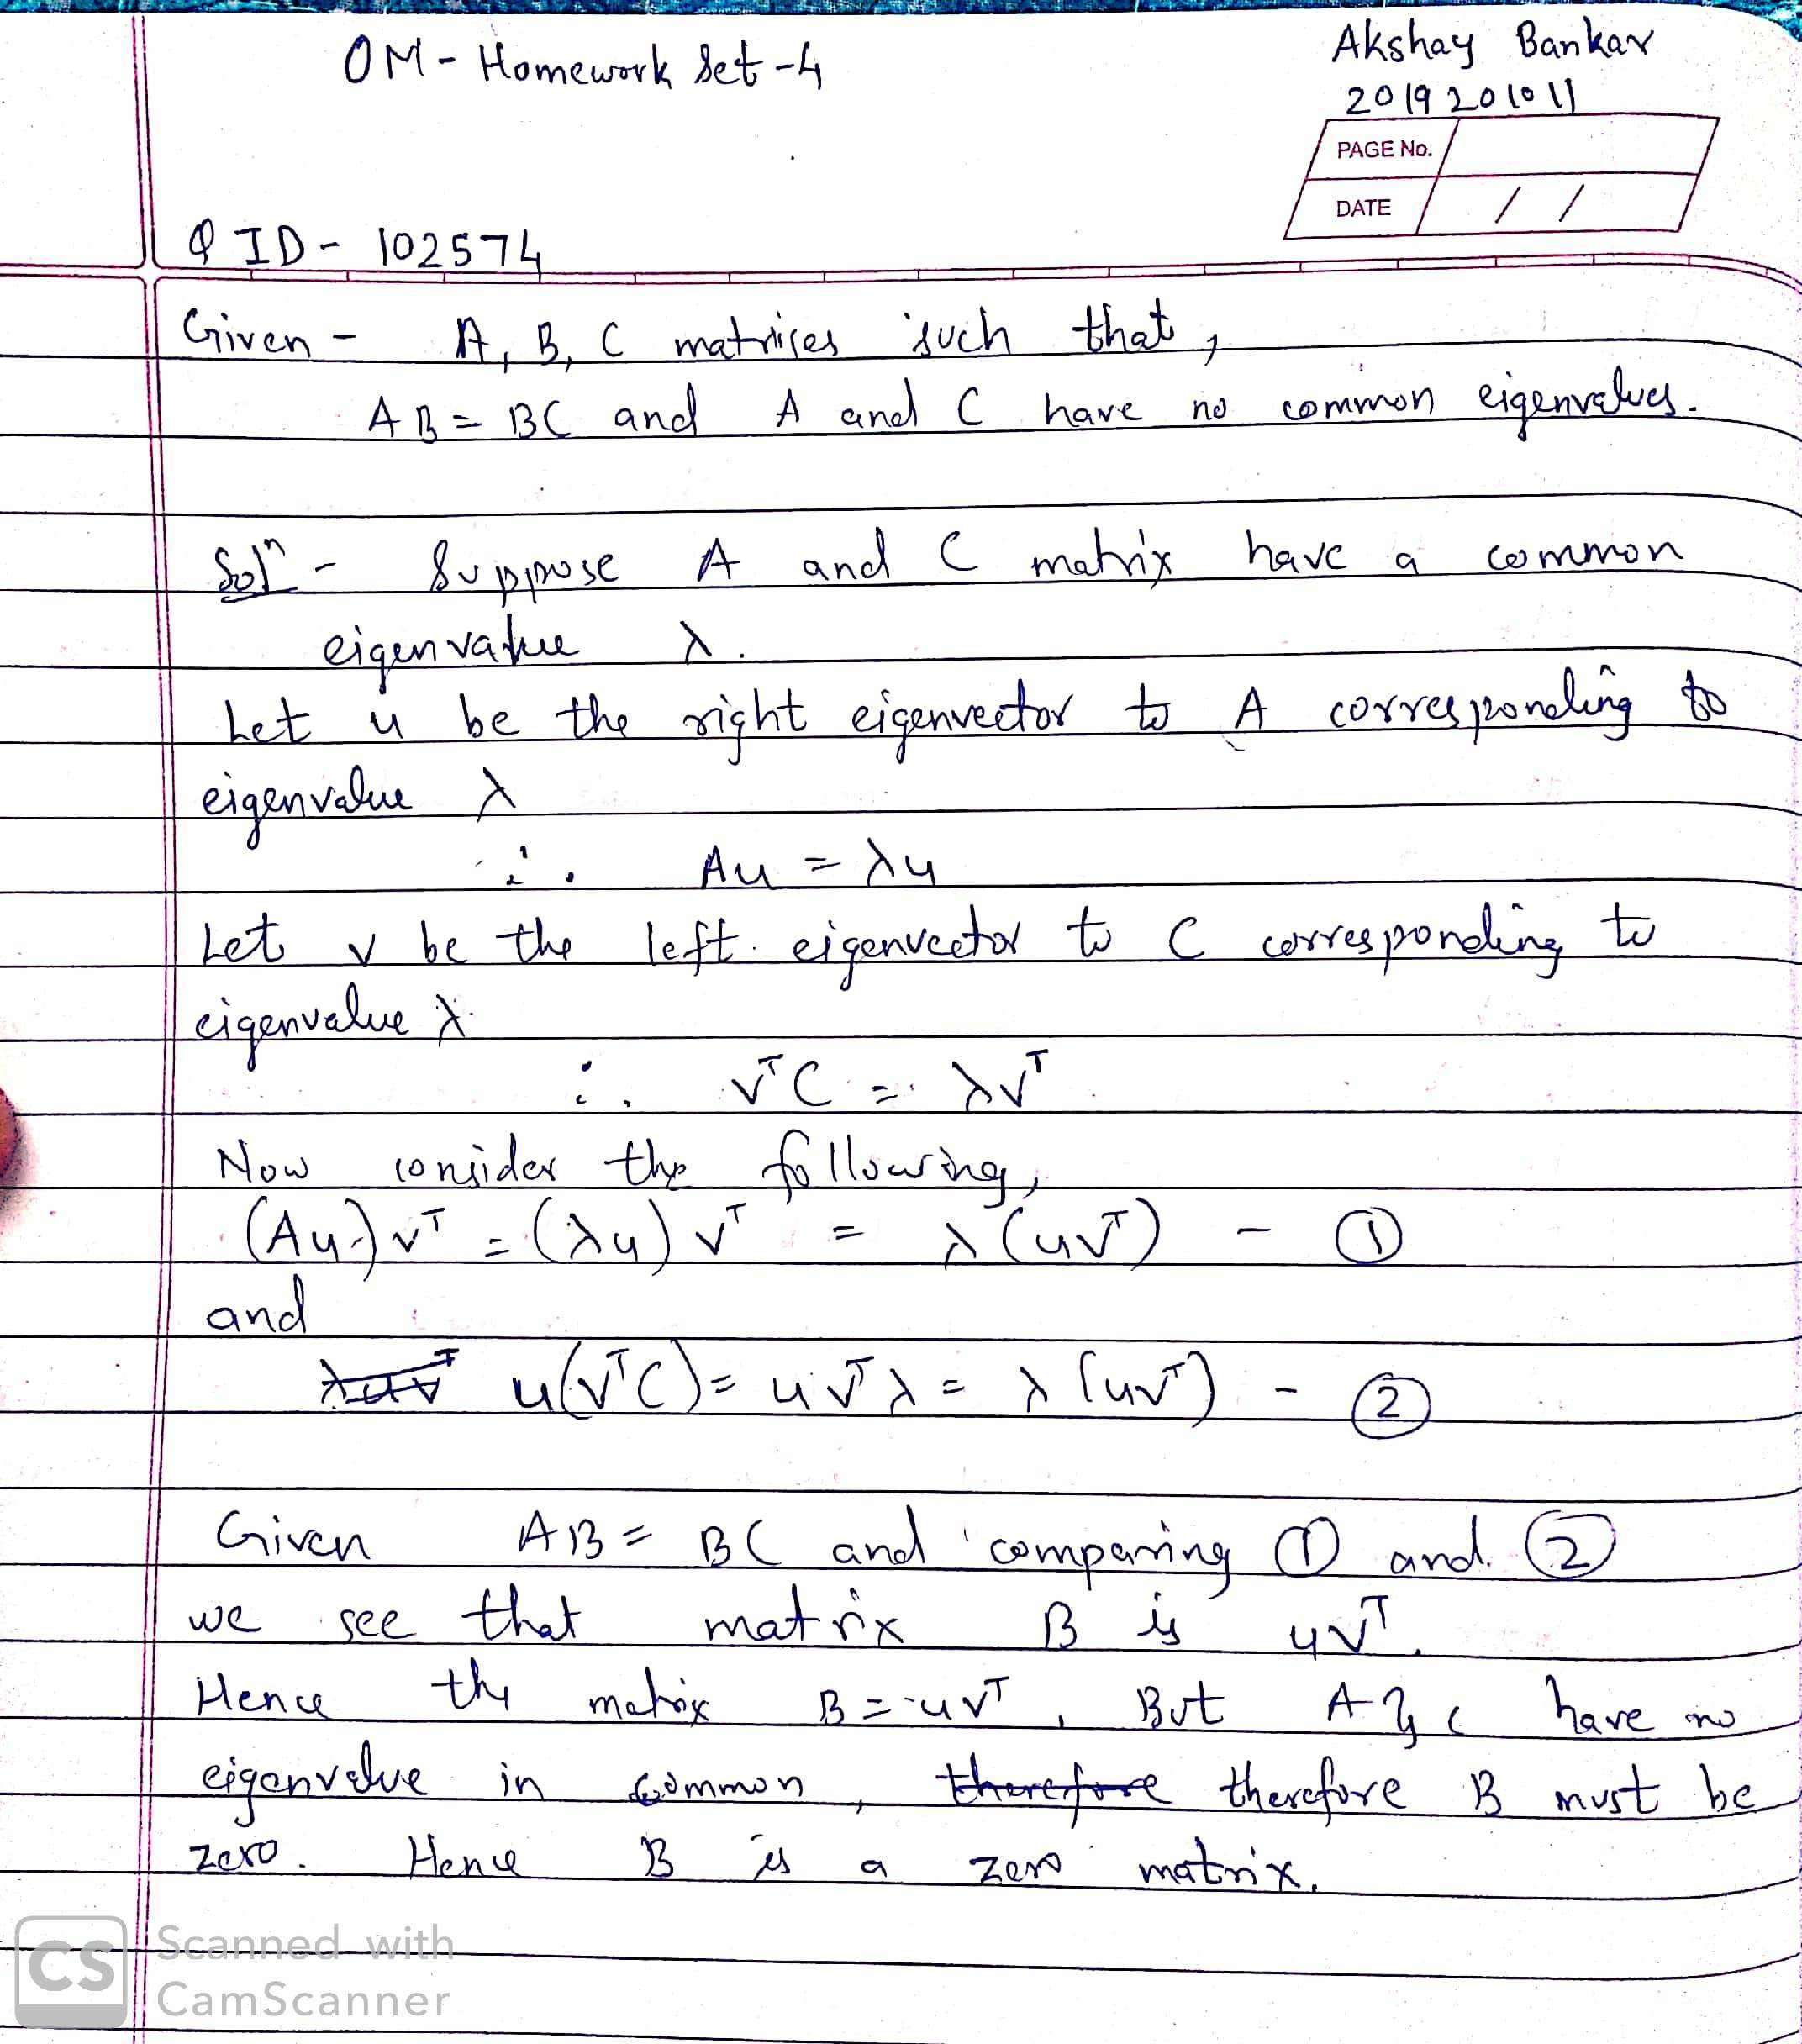 OM - Homework Set - 4
Akshay Bankar
2019201011
PAGE No.
DATE / /
Q ID - 102574
Given - A, B, C matrises such that,
AB = BC and A and C have no common eigenvalues.
Solⁿ - Suppose A and C matrix have a common
eigenvalue λ.
Let u be the right eigenvector to A corresponding to
eigenvalue λ
∴ Au = λu
Let v be the left eigenvector to C corresponding to
eigenvalue λ.
∴ vᵀC = λvᵀ
Now consider the following,
(Au)vᵀ = (λu)vᵀ = λ(uvᵀ) - ①
and
u(vᵀC) = uvᵀλ = λ(uvᵀ) - ②
Given AB = BC and comparing ① and ②
we see that matrix B is uvᵀ.
Hence the matrix B = uvᵀ, But A & C have no
eigenvalue in common, therefore therefore B must be
zero. Hence B is a zero matrix.
CS Scanned with
CamScanner